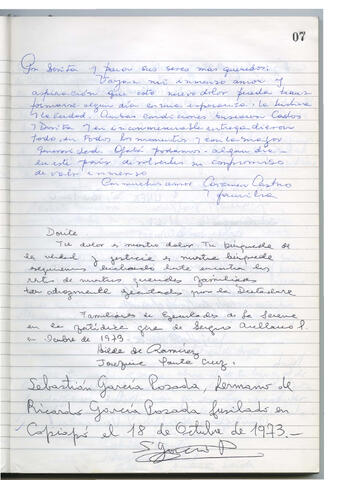 07
Por Dorita y para sus seres más queridos:
Vaya mi inmenso amor y
aspiración que este nuevo dolor pueda trans
formarse algún día en una esperanza: la Justicia
y la verdad. Ambas condiciones buscaron Carlos
y Dorita y en inconmensurable entrega dieron
todo, en todos los momentos y con la mayor
generosidad. Ojalá podamos algún día
en este país devolverles su compromiso
de valor inmenso
Con mucho amor Carmen Castro
y familia
Dorita
Tu dolor es nuestro dolor. Tu búsqueda de
la verdad y justicia es nuestra búsqueda
seguiremos luchando hasta encontrar los
restos de nuestros queridos familiares
tan
por la Dictadura
Familiares de Ejecutados de La Serena
en la
gira de Sergio Arellano S.
en Octubre de 1973.
Hilda de Ramírez
Santa Cruz.
Sebastián García Posada, hermano de
Ricardo García Posada fusilado en
Copiapó el 18 de Octubre de 1973.—